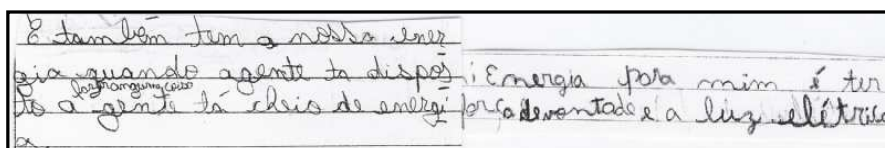 E também tem a nossa ener
gia quando agente ta dispos
to a gente tá cheio de energi
a.
Energia para mim é ter
força de vontade e a luz elétrica